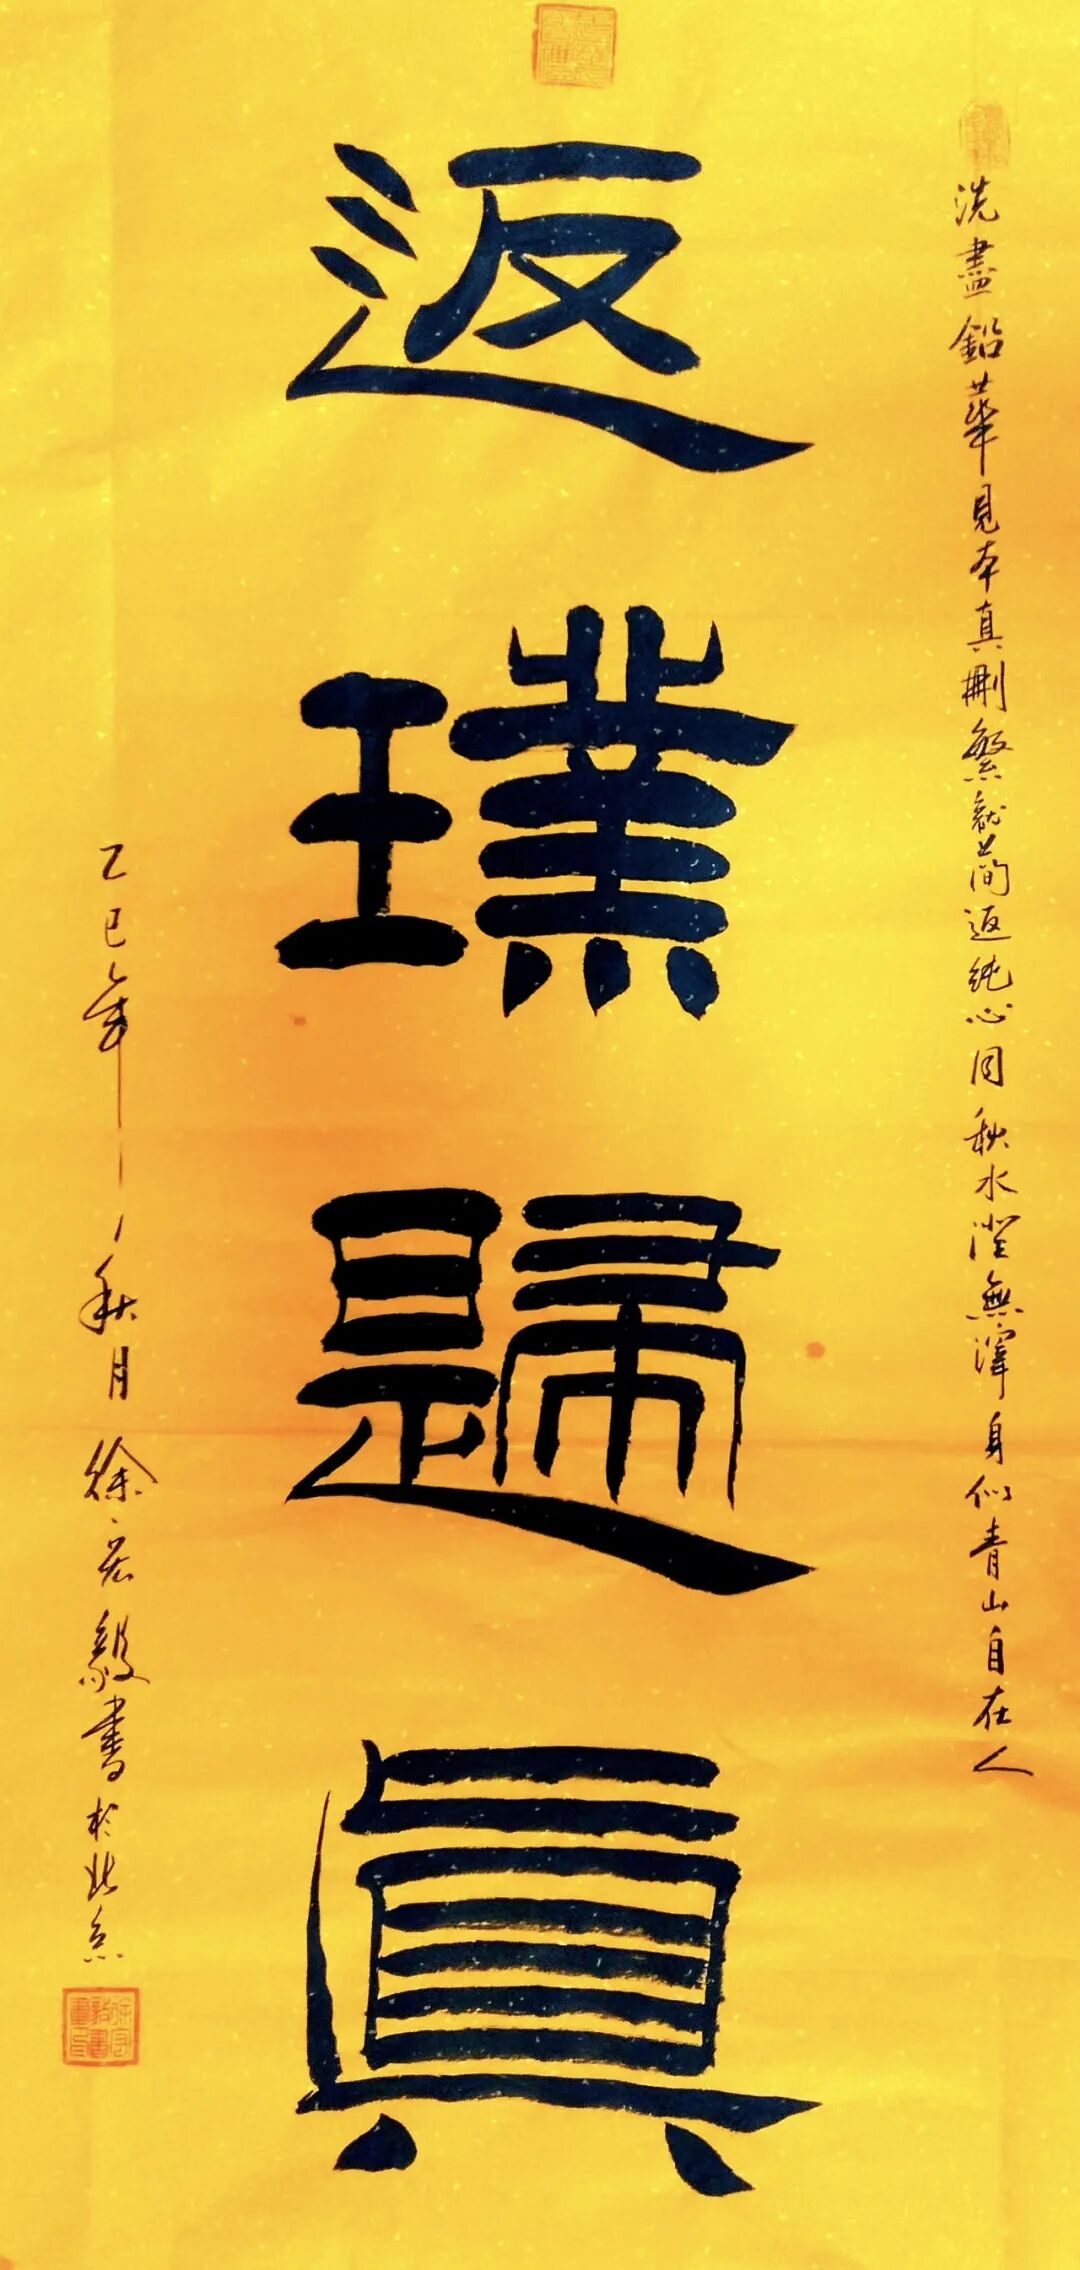 洗盡鉛華見本真刪繁就簡返純心同秋水澄無滓身似青山自在人
返璞歸真
乙巳年秋月徐宏毅書於北京
徐宏毅書畫印